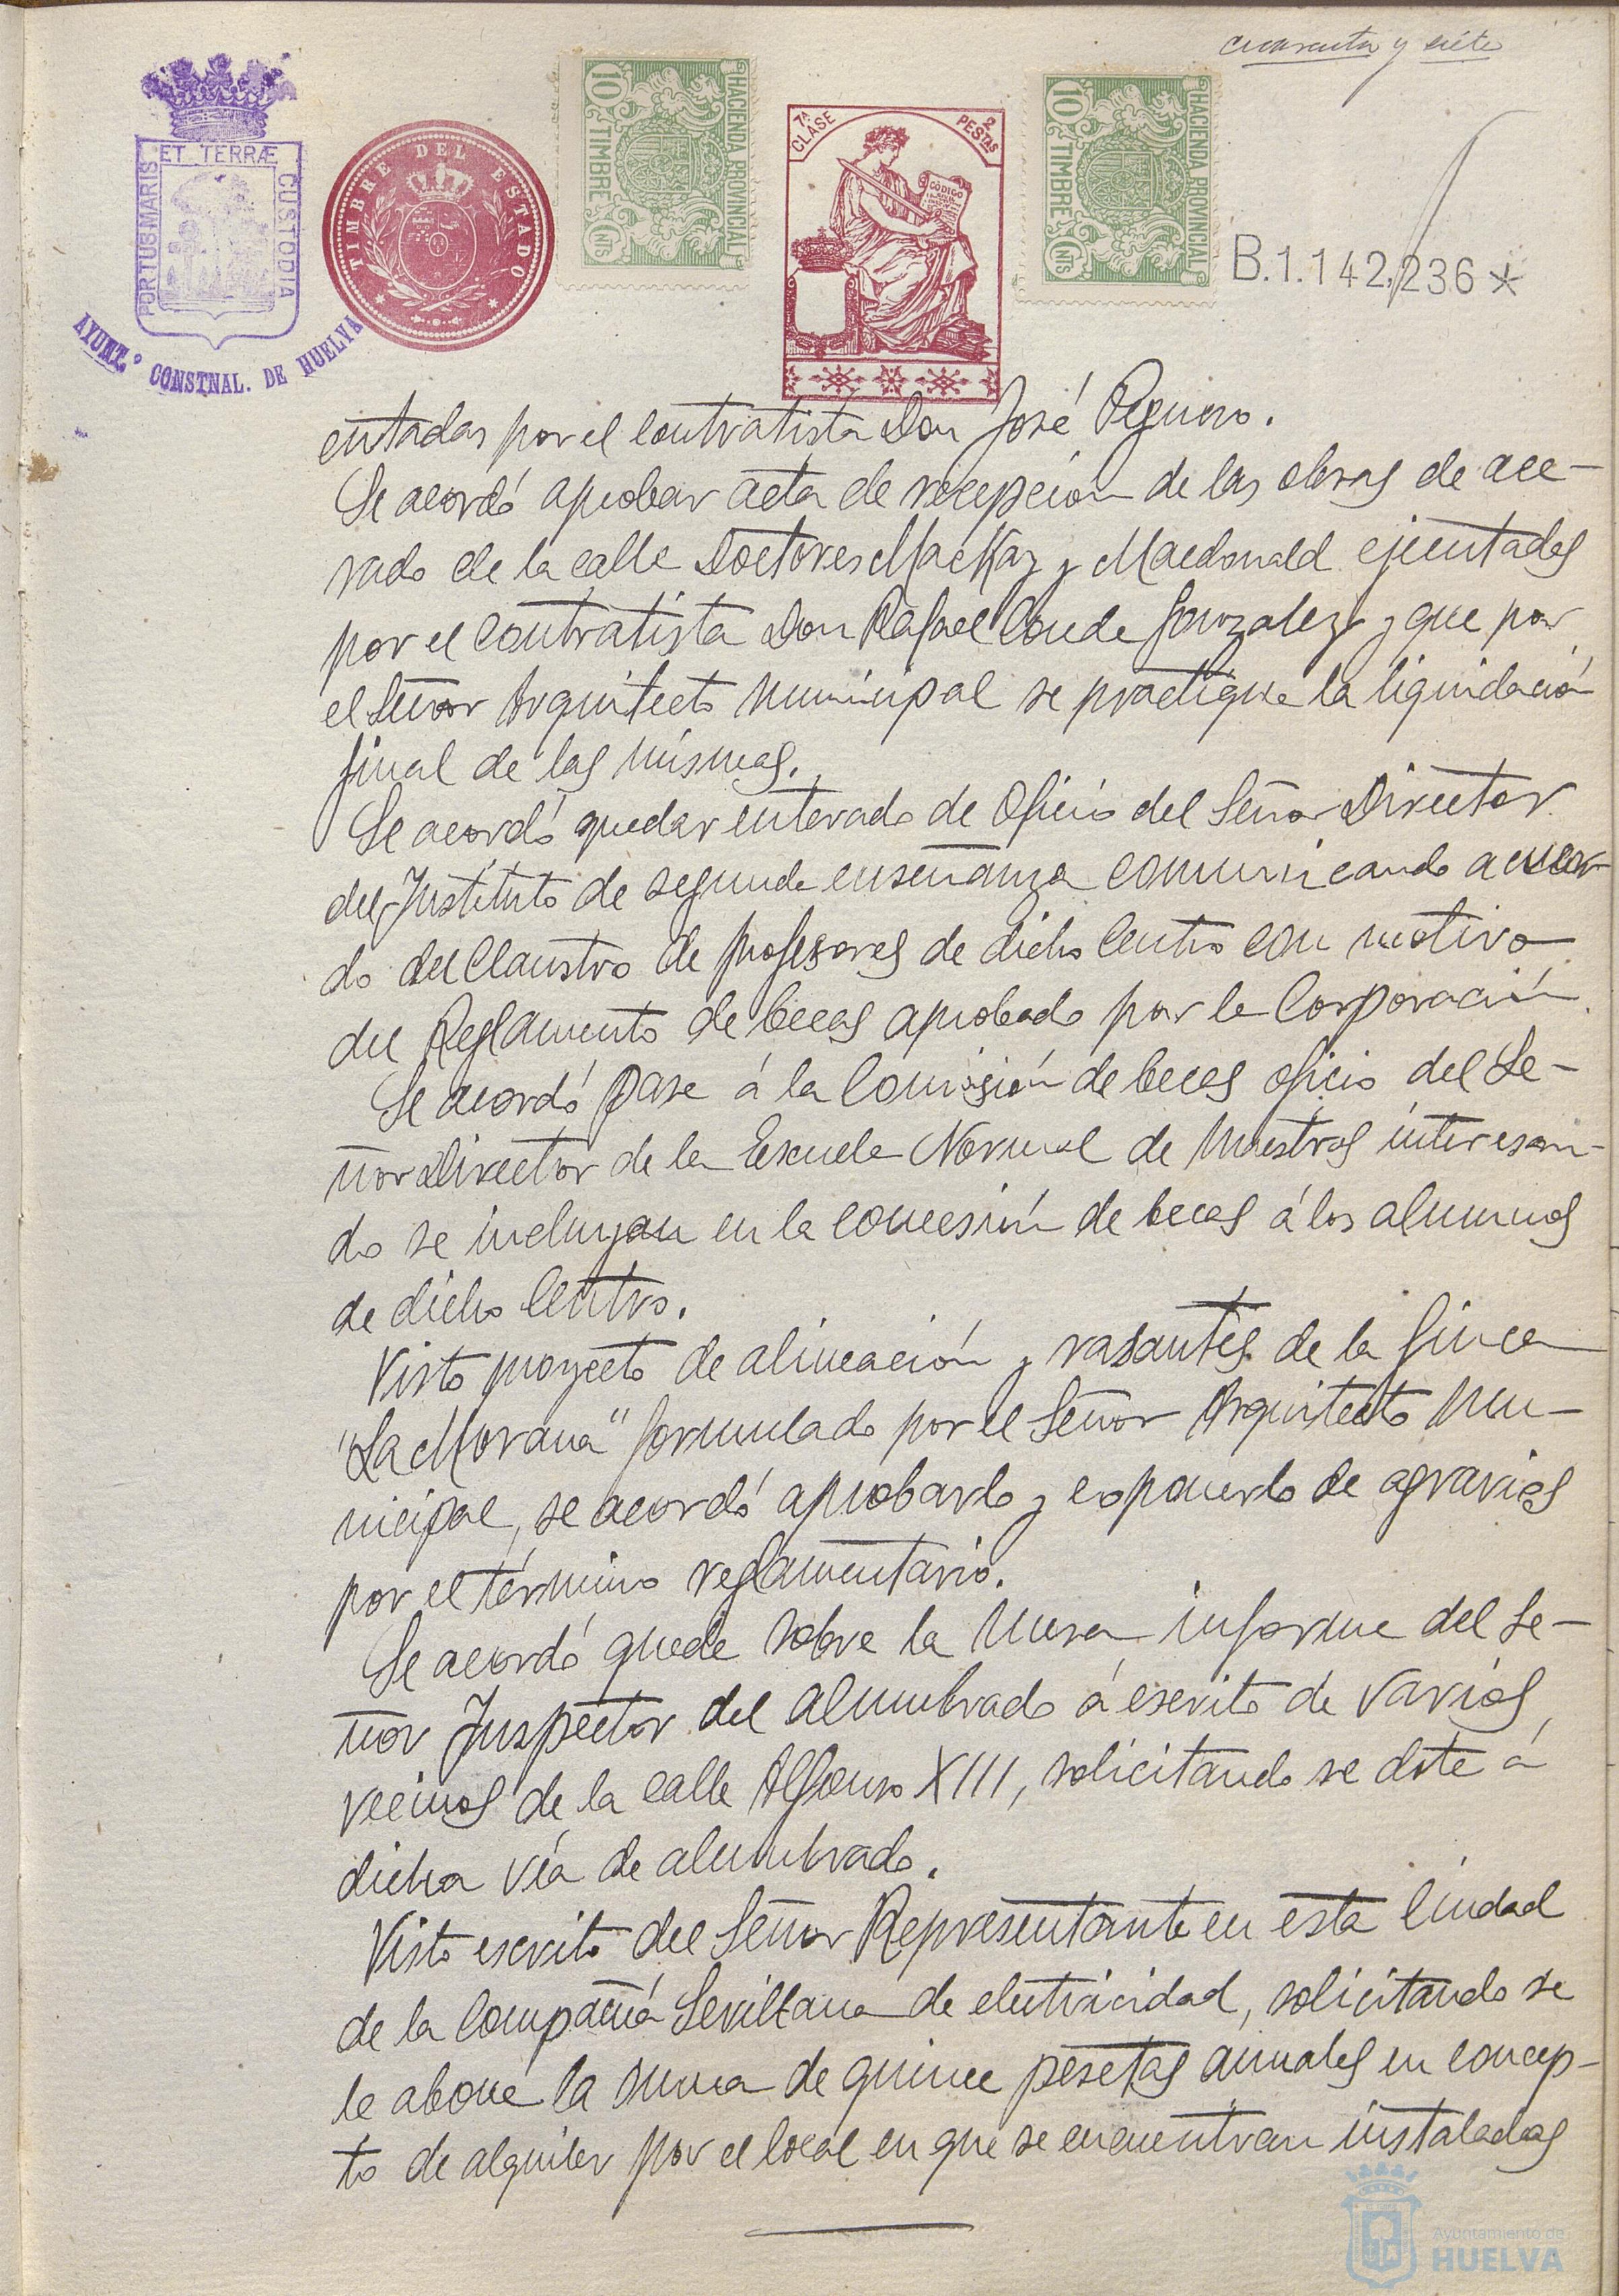 cuarenta y siete
PORTUS MARIS ET TERRÆ CUSTODIA
AYUNT.º CONSTNAL. DE HUELVA
TIMBRE DEL ESTADO
10 TIMBRE CNTS HACIENDA PROVINCIAL
7ª CLASE 2 PESTAS
CÓDIGO
10 TIMBRE CNTS HACIENDA PROVINCIAL
B.1.142,236*
entadas por el contratista Don José Peguero.
Se acordó aprobar acta de recepción de las obras de ace-
rado de la calle Doctores MacKay y Macdonald ejecutadas
por el contratista Don Rafael Conde Gonzalez y que por
el Señor Arquitecto Municipal se practique la liquidación
final de las mismas.
Se acordó quedar enterado de Oficio del Señor Director
del Instituto de segunda enseñanza comunicando acuer-
do del Claustro de profesores de dicho Centro con motivo
del Reglamento de becas aprobado por la Corporación.
Se acordó pase á la Comisión de becas oficio del Se-
ñor Director de la Escuela Normal de Maestros interesan-
do se incluyan en la concesión de becas á los alumnos
de dicho Centro.
Visto proyecto de alineación y rasantes de la finca
"La Morana" formulado por el Señor Arquitecto Mu-
nicipal, se acordó aprobarlo y exponerlo de agravios
por el término reglamentario.
Se acordó quede sobre la Mesa informe del Se-
ñor Inspector del alumbrado á escrito de varios
vecinos de la calle Alfonso XIII, solicitando se dote á
dicha vía de alumbrado.
Visto escrito del Señor Representante en esta Ciudad
de la Compañía Sevillana de electricidad, solicitando se
le abone la suma de quince pesetas anuales en concep-
to de alquiler por el local en que se encuentran instaladas
Ayuntamiento de
HUELVA